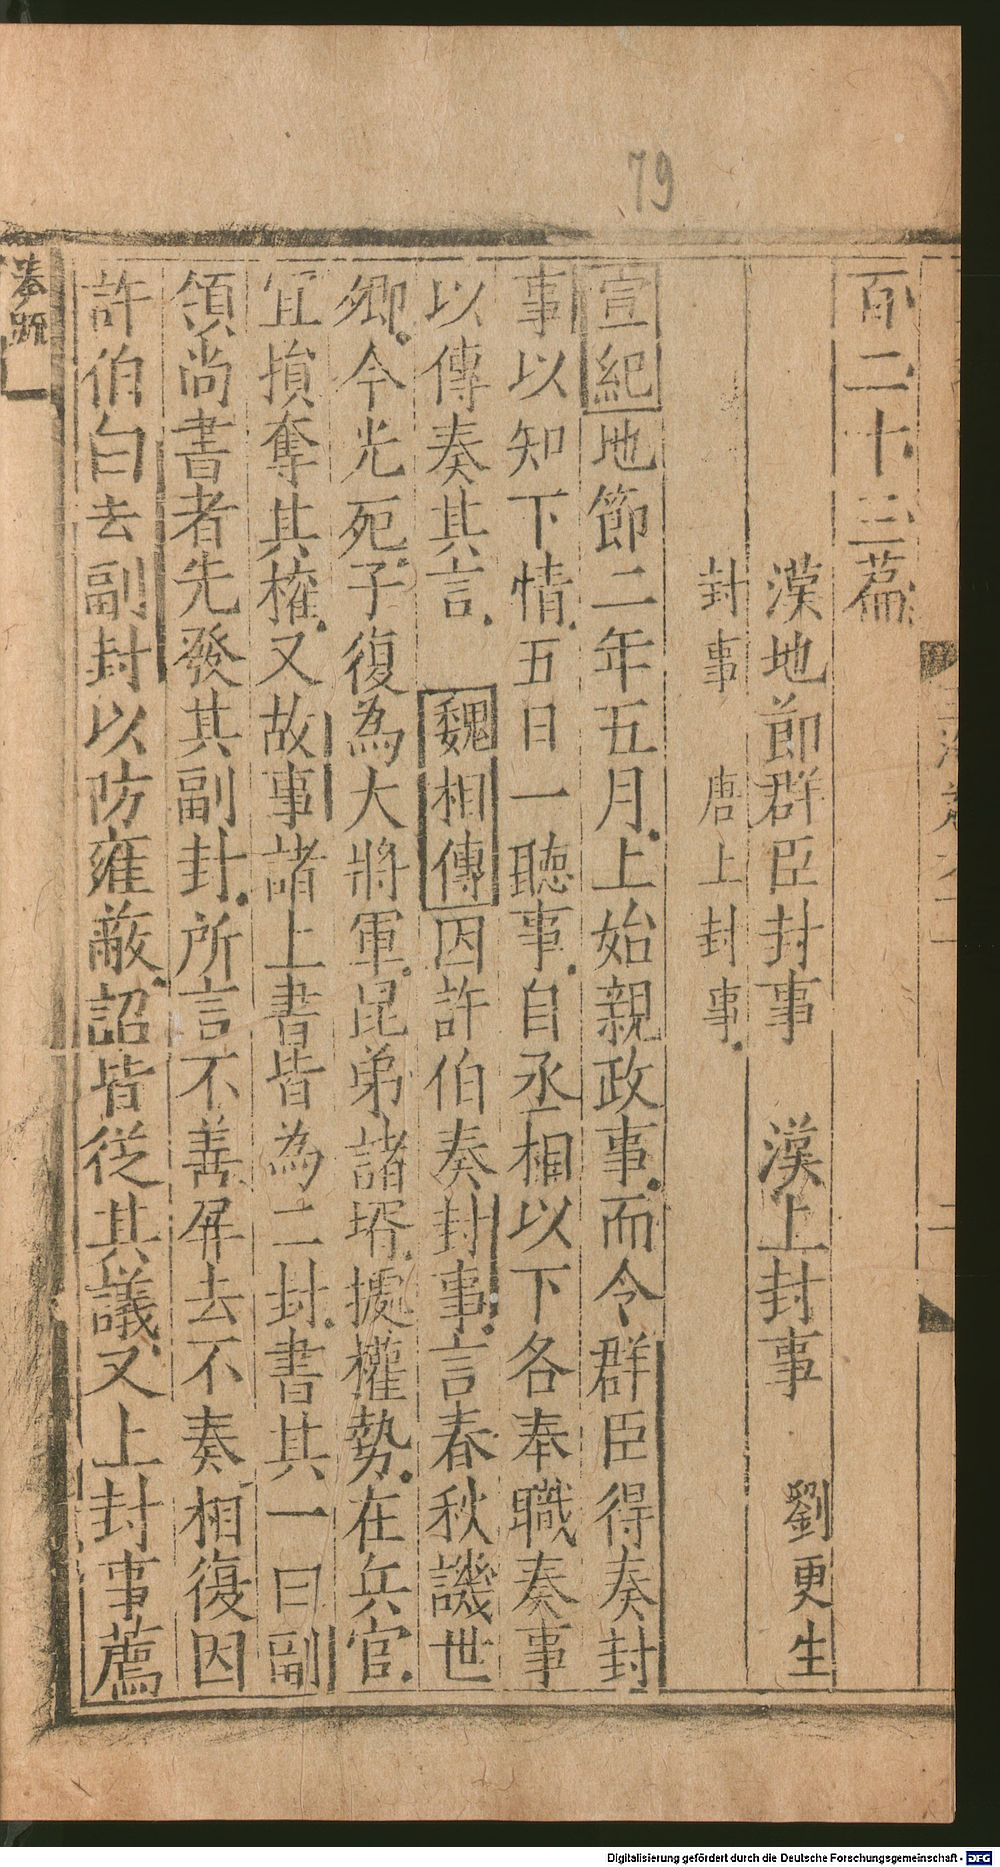 79
百二十三篇
漢地節群臣封事 漢上封事 劉更生
封事 唐上封事
宣紀地節二年五月上始親政事而令群臣得奏封
事以知下情五日一聽事自丞相以下各奉職奏事
以傳奏其言 魏相傳因許伯奏封事言春秋譏世
卿今光死子復為大將軍昆弟諸壻據權勢在兵官
宜損奪其權又故事諸上書皆為二封書其一曰副
領尚書者先發其副封所言不善屏去不奏相復因
許伯白去副封以防雍蔽詔皆從其議又上封事薦
奏疏
Digitalisierung gefördert durch die Deutsche Forschungsgemeinschaft - DFG